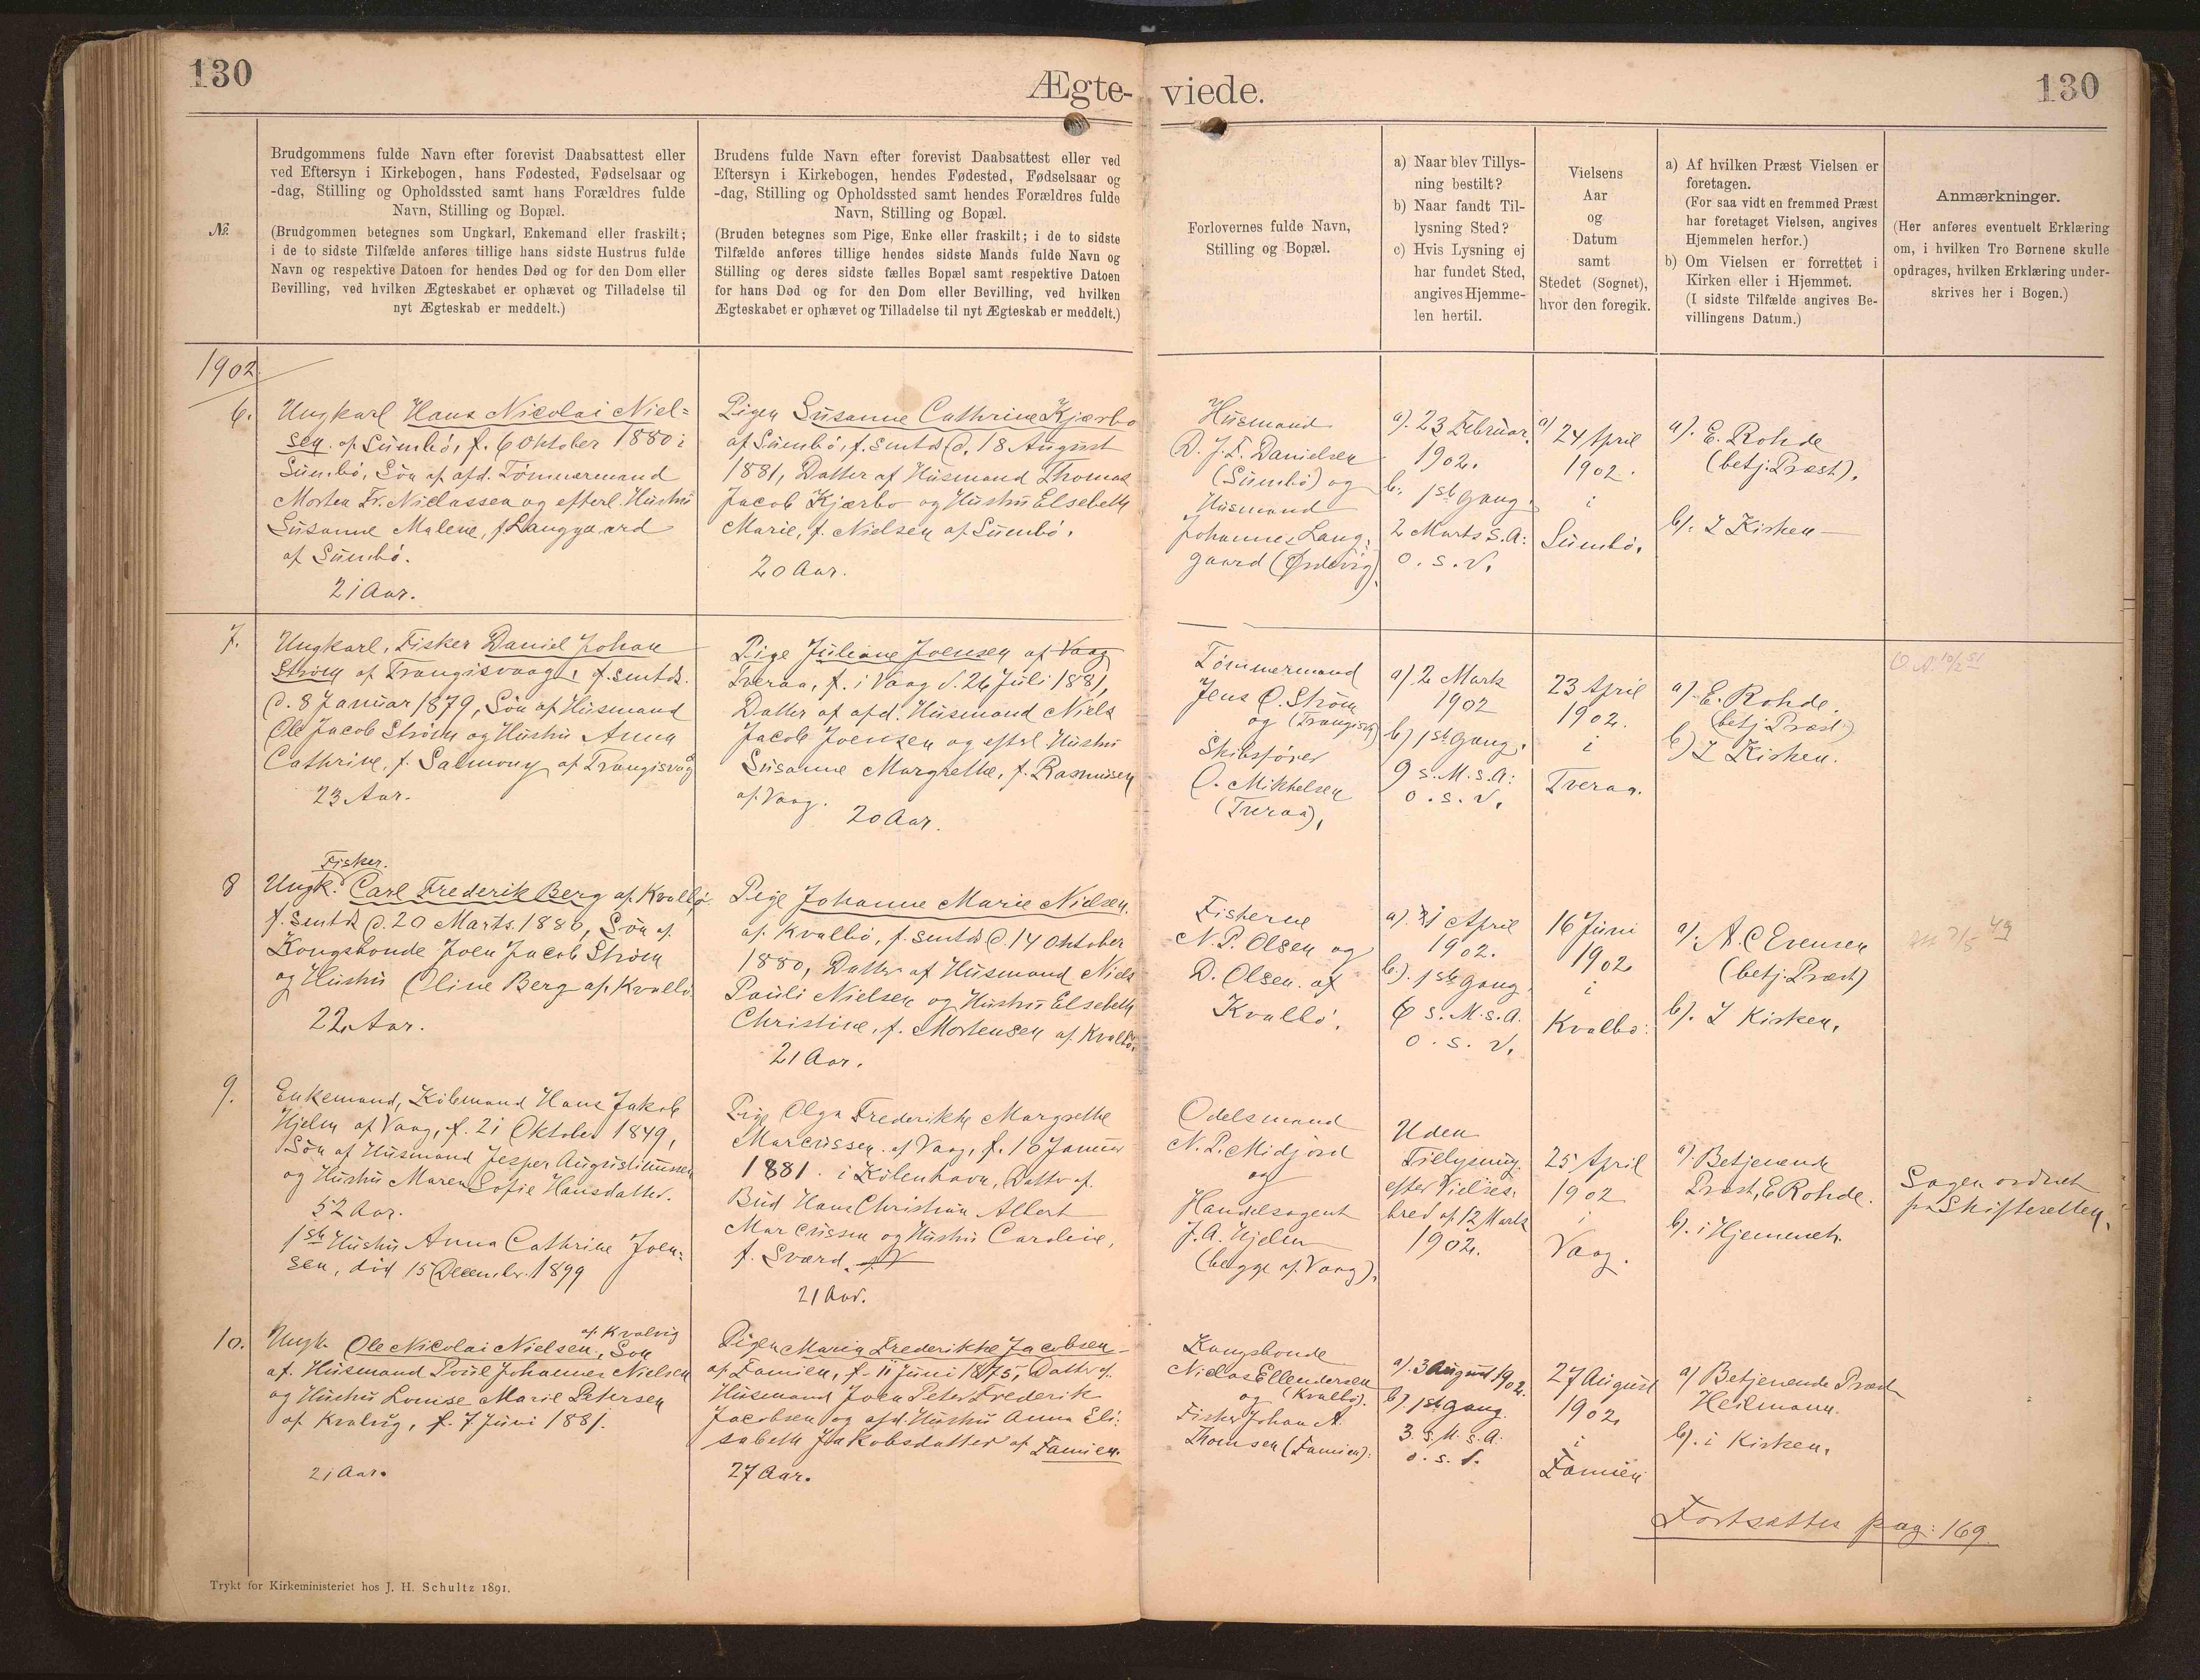 130
Ægte-
viede.
130
№
Brudgommens fulde Navn efter forevist Daabsattest eller
ved Eftersyn i Kirkebogen, hans Fødested, Fødselsaar og
-dag, Stilling og Opholdssted samt hans Forældres fulde
Navn, Stilling og Bopæl.
(Brudgommen betegnes som Ungkarl, Enkemand eller fraskilt;
i de to sidste Tilfælde anføres tillige hans sidste Hustrus fulde
Navn og respektive Datoen for hendes Død og for den Dom eller
Bevilling, ved hvilken Ægteskabet er ophævet og Tilladelse til
nyt Ægteskab er meddelt.)
Brudens fulde Navn efter forevist Daabsattest eller ved
Eftersyn i Kirkebogen, hendes Fødested, Fødselsaar og
-dag, Stilling og Opholdssted samt hendes Forældres fulde
Navn, Stilling og Bopæl.
(Bruden betegnes som Pige, Enke eller fraskilt; i de to sidste
Tilfælde anføres tillige hendes sidste Mands fulde Navn og
Stilling og deres sidste fælles Bopæl samt respektive Datoen
for hans Død og for den Dom eller Bevilling, ved hvilken
Ægteskabet er ophævet og Tilladelse til nyt Ægteskab er meddelt.)
Forlovernes fulde Navn,
Stilling og Bopæl.
a) Naar blev Tillys-
ning bestilt?
b) Naar fandt Til-
lysning Sted?
c) Hvis Lysning ej
har fundet Sted,
angives Hjemme-
len hertil.
Vielsens
Aar
og
Datum
samt
Stedet (Sognet),
hvor den foregik.
a) Af hvilken Præst Vielsen er
foretagen.
(For saa vidt en fremmed Præst
har foretaget Vielsen, angives
Hjemmelen herfor.)
b) Om Vielsen er forrettet i
Kirken eller i Hjemmet.
(I sidste Tilfælde angives Be-
villingens Datum.)
Anmærkninger.
(Her anføres eventuelt Erklæring
om, i hvilken Tro Børnene skulle
opdrages, hvilken Erklæring under-
skrives her i Bogen.)
1902.
6.
Ungkarl Hans Nicolai Niel=
sen. af Sumbø, f. 6 Oktober 1880 i
Sumbø, Søn af afd. Tømmermand
Morten Fr. Niclassen og efterl. Hustru
Susanne Malene, f. Langgaard
af Sumbø.
21 Aar.
Pigen Susanne Cathrine Kjærbo
af Sumbø, f. smtds d. 18 August
1881, Datter af Husmand Thomas
Jacob Kjærbo og Hustru Elsebeth
Marie, f. Nielsen af Sumbø.
20 Aar.
Husmand
D. J. F. Danielsen
(Sumbø) og
Husmand
Johannes Lang=
gaard (Ørdevig).
a). 23 Februar
1902.
b. 1ste Gang
2 Marts s. A:
o. s. v.
24 April
1902.
i
Sumbø.
a). E. Rohde
(betj. Præst).
b). I Kirken
7.
Ungkarl, Fisker Daniel Johan
Strøm af Trangisvaag, f. smtds.
d. 8 Januar 1879, Søn af Husmand
Ole Jacob Strøm og Hustru Anna
Cathrine, f. Salmony af Trangisvaag
23 Aar.
Pige Juliane Joensen af Vaag
Tveraa, f. i Vaag d. 26 Juli 1881,
Datter af afd. Husmand Niels
Jacob Joensen og efterl. Hustru
Susanne Margrethe, f. Rasmusen
af Vaag.
20 Aar.
Tømmermand
Jens O. Strøm
og (Trangisv.)
Skibsfører
O. Mikkelsen
(Tveraa),
a) 2 Marts
1902
b) 1ste Gang.
9 s. M. s. A:
o. s. v.
23 April
1902.
i
Tveraa.
a). E. Rohde.
(betj. Præst)
b) I Kirken.
8
Fisker.
Ungk. Carl Frederik Berg af Kvalbø.
f. smtds d. 20 Marts 1880, Søn af
Kongsbonde Joen Jacob Strøm
og Hustru Oline Berg af Kvalbø
22 Aar.
Pige Johanne Marie Nielsen.
af Kvalbø, f. smtds d. 14 Oktober
1880, Datter af Husmand Niels
Pauli Nielsen og Hustru Elsebeth
Christine, f. Mortensen af Kvalbø.
21 Aar.
Fiskerne
N. P. Olsen og
D. Olsen af
Kvalbø.
a). 1 April
1902.
b). 1ste Gang
6 s. M. s. A.
o. s. v.
16 Juni
1902
i
Kvalbø.
a). A. C Evensen
(betj. Præst)
b). I Kirken.
9.
Enkemand, Købmand Hans Jakob
Hjelm af Vaag, f. 21 Oktober 1849,
Søn af Husmand Jesper Augustinussen
og Hustru Maren Sofie Hansdatter.
52 Aar.
1ste Hustru Anna Cathrine Joen=
sen, død 15 Decembr. 1899
Pige Olga Frederikke Margrethe
Marcussen af Vaag, f. 16 Januar
1881. i København, Datter af
Bud Hans Christian Albert
Marcussen og Hustru Caroline,
f. Sværd.
21 Aar.
Odelsmand
N. P. Midjord
og
Handelsagent
J. A. Hjelm
(begge af Vaag).
Uden
Tillysning
efter Vielses=
bred af 12 Marts
1902.
25 April
1902
i
Vaag.
a). Betjenende
Præst, E Rohde.
b). i Hjemmet.
Sagen ordnet
for Skifteretten.
10.
af Kvalvig
Ungk. Ole Nicolai Nielsen, Søn
af Husmand Poul Johannes Nielsen
og Hustru Lovise Marie Petersen
af Kvalvig, f. 7 Juni 1881.
21 Aar.
Pigen Maria Frederikke Jacobsen
af Famien, f. 11 Juni 1875, Datter af
Husmand Joen Peter Frederik
Jacobsen og afd. Hustru Anna Eli=
sabeth Jakobsdatter af Famien.
27 Aar.
Kongsbonde
Niclas Ellendersen
og (Kvalbø).
Fisker Johan A.
Thomsen (Famien).
a). 3 August 1902.
b). 1ste Gang.
3. s. M. s. A.
o. s. v.
27 August
1902
i
Famien
a) Betjenende Præst
Heilmann.
b). i Kirken.
Fortsættes pag: 169
Trykt for Kirkeministeriet hos J. H. Schultz 1891.